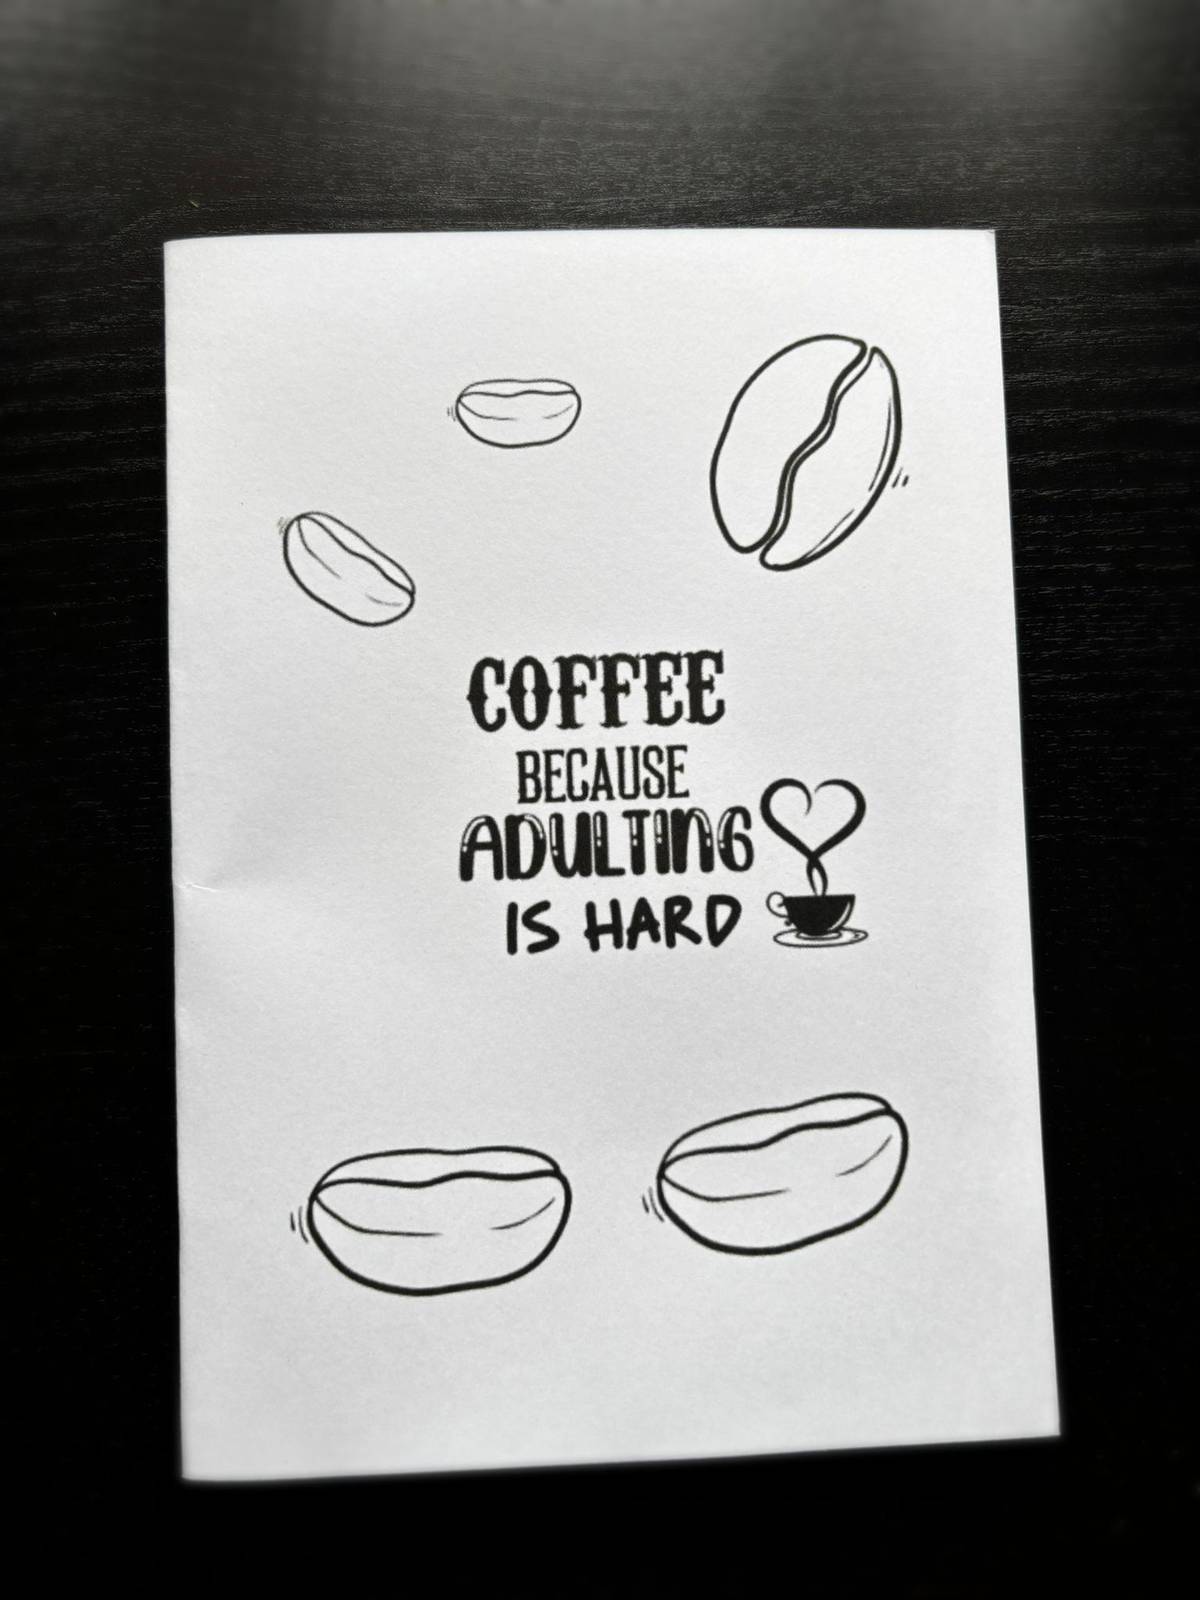 COFFEE
BECAUSE
ADULTING
IS HARD